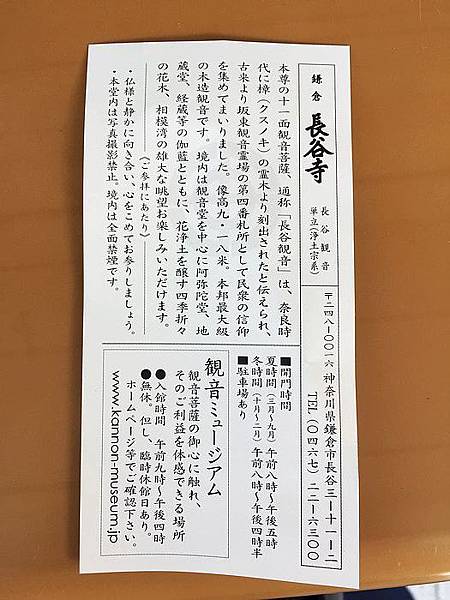 鎌倉 長谷寺
長谷観音
単立(浄土宗系)
〒二四八-〇〇一六 神奈川県鎌倉市長谷三-十一-二
TEL(〇四六七)二二-六三〇〇
本尊の十一面観音菩薩、通称「長谷観音」は、奈良時
代に樟(クスノキ)の霊木より刻出されたと伝えられ、
古来より坂東観音霊場の第四番札所として民衆の信仰
を集めてまいりました。像高九・一八米。本邦最大級
の木造観音です。境内は観音堂を中心に阿弥陀堂、地
蔵堂、経蔵等の伽藍とともに、花浄土を醸す四季折々
の花木、相模湾の雄大な眺望お楽しみいただけます。
〈ご参拝にあたり〉
・仏様と静かに向き合い、心をこめてお参りしましょう。
・本堂内は写真撮影禁止。境内は全面禁煙です。
■開門時間
夏時間(三月〜九月)午前八時〜午後五時
冬時間(十月〜二月)午前八時〜午後四時半
■駐車場あり
観音ミュージアム
観音菩薩の御心に触れ、
そのご利益を体感できる場所
●入館時間 午前九時〜午後四時
●無休。但し、臨時休館日あり。
ホームページ等でご確認下さい。
www.kannon-museum.jp